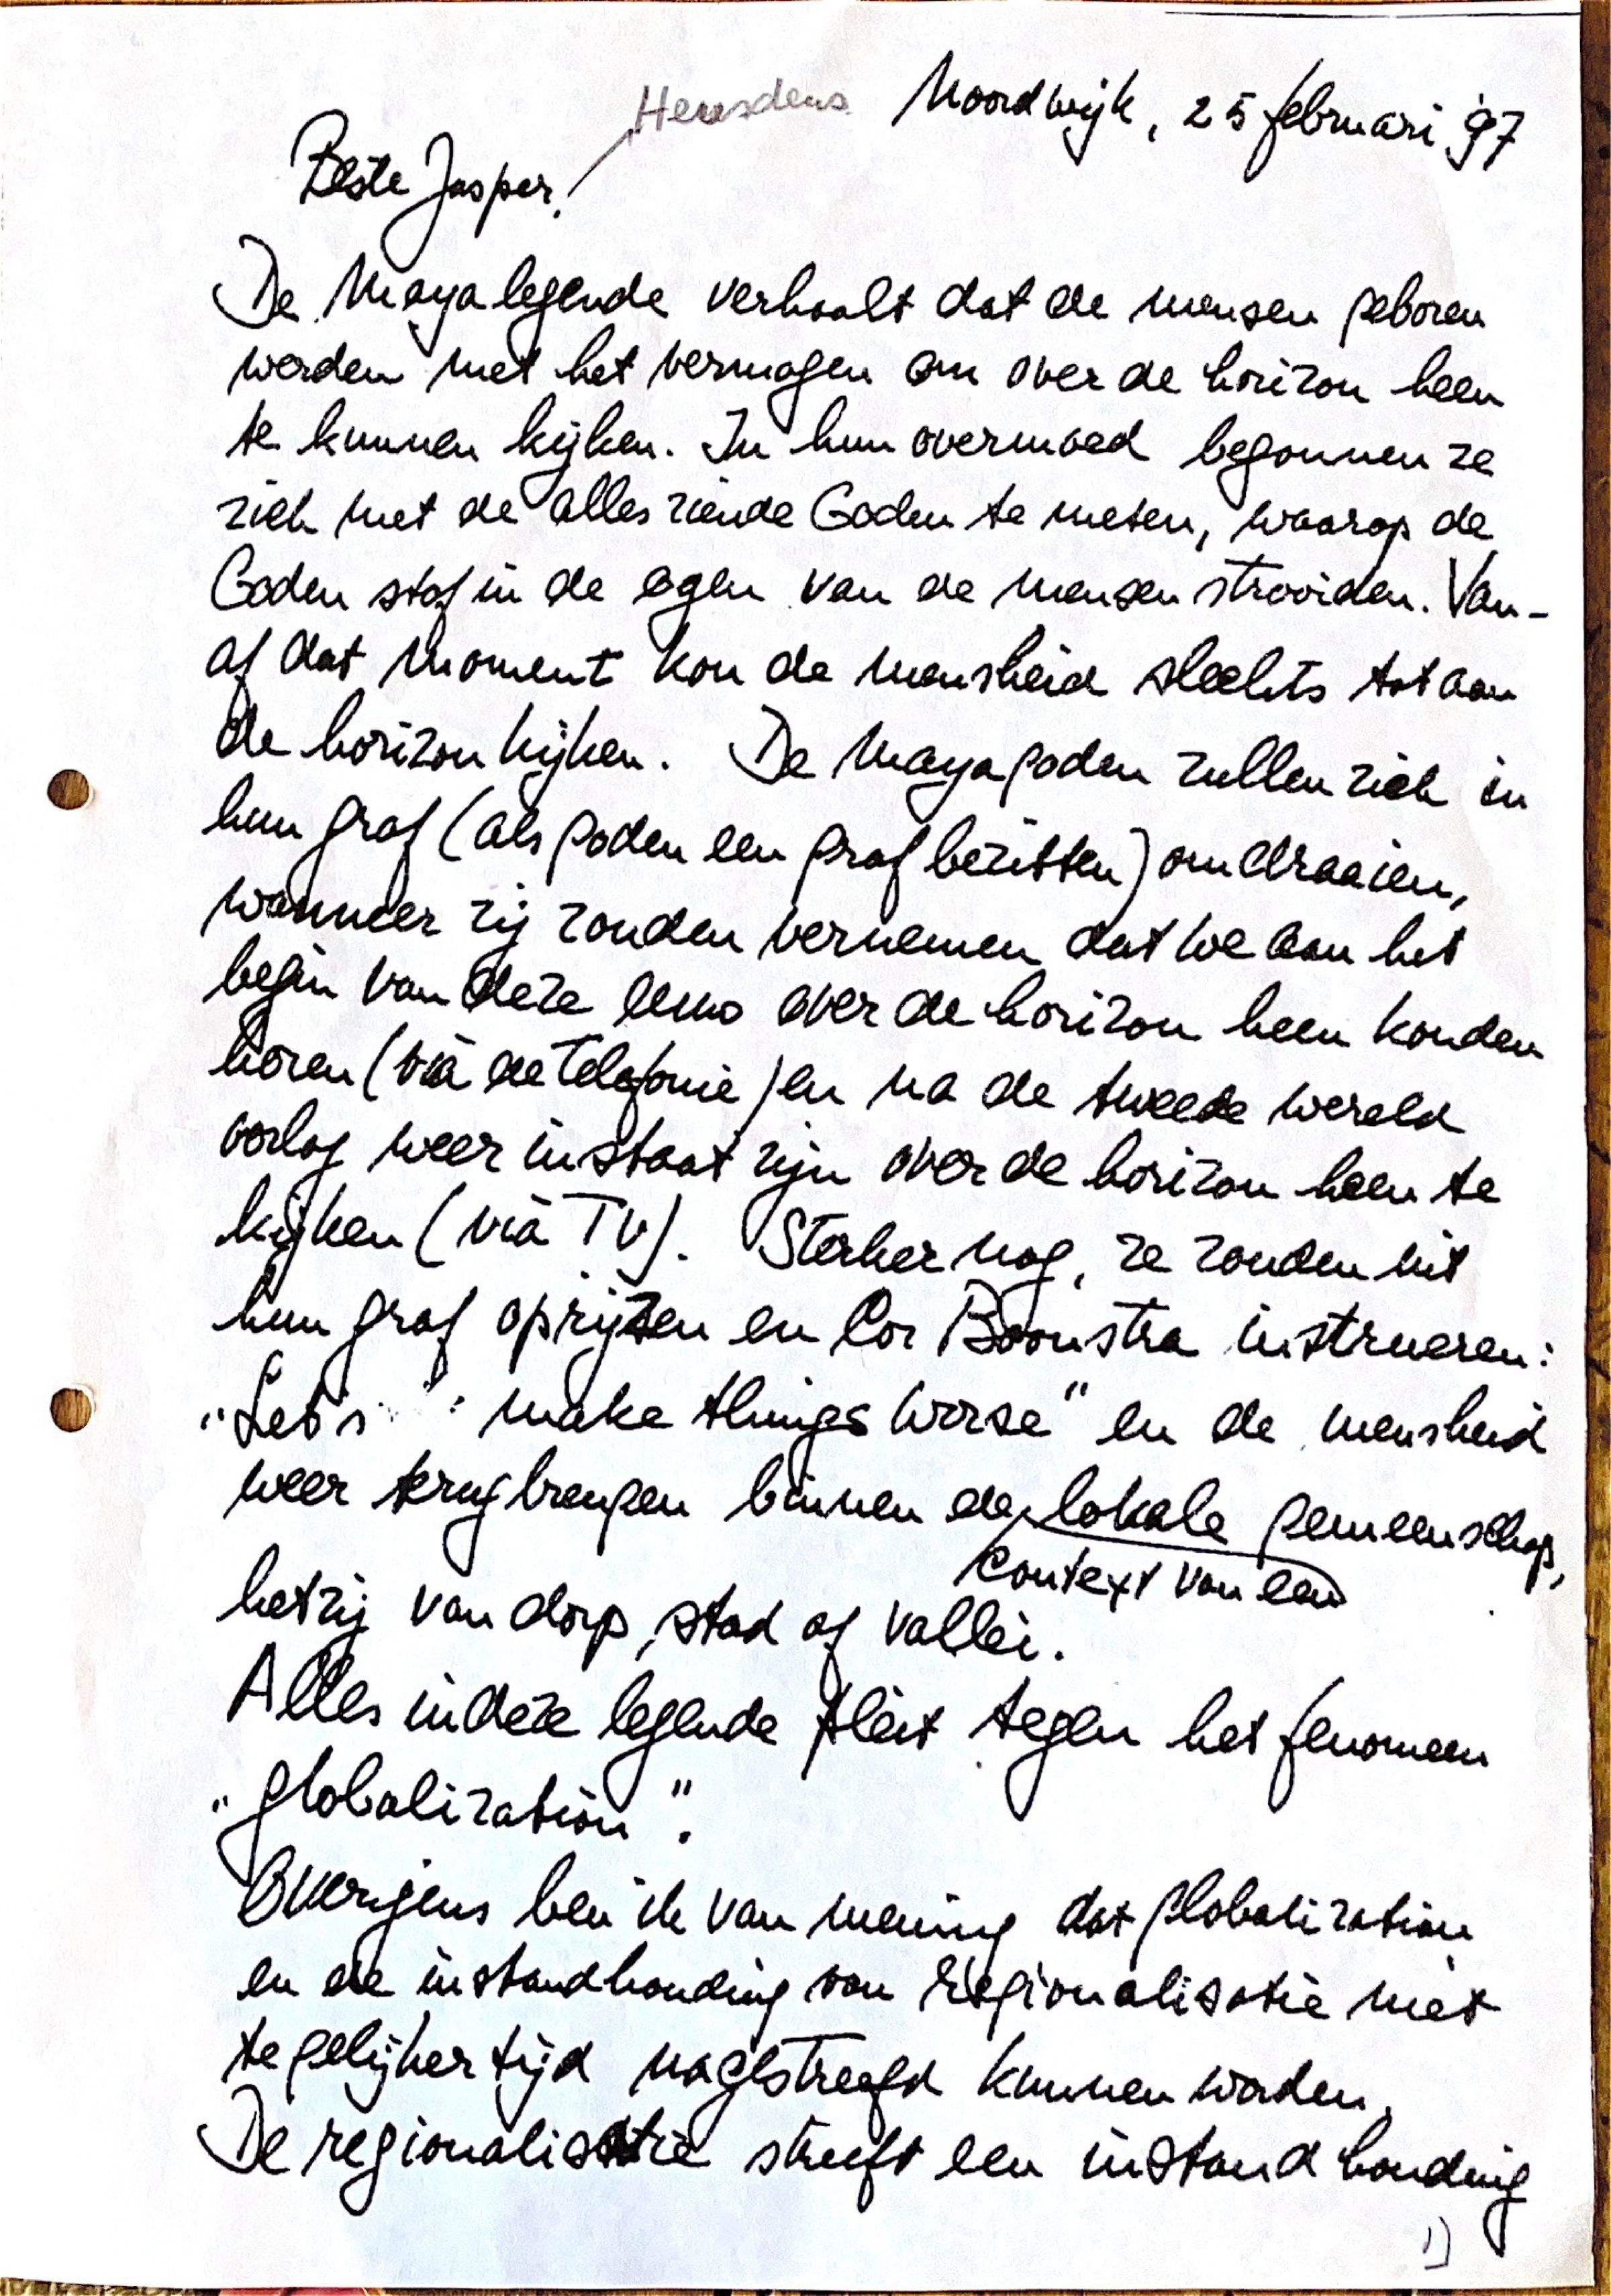 Heusdens Noordwijk, 25 februari '97
Beste Jasper!
De Maya legende verhaalt dat de mensen geboren
werden met het vermogen om over de horizon heen
te kunnen kijken. In hun overmoed begonnen ze
zich met de alles ziende Goden te meten, waarop de
Goden stof in de ogen van de mensen strooiden. Van-
af dat moment kon de mensheid slechts tot aan
de horizon kijken. De Maya goden zullen zich in
hun graf (als goden een graf bezitten) omdraaien,
wanneer zij zouden vernemen dat we aan het
begin van deze eeuw over de horizon heen konden
horen (via de telefonie) en na de tweede wereld
oorlog weer in staat zijn over de horizon heen te
kijken (via TV). Sterker nog, ze zouden uit
hun graf oprijzen en Cor Boonstra instrueren:
"Let's make things worse" en de mensheid
weer terugbrengen binnen de lokale gemeenschap,
context van een
hetzij van dorp, stad of vallei.
Alles in deze legende pleit tegen het fenomeen
"globalization".
Overigens ben ik van mening dat globalization
en de instandhouding van regionalisatie niet
tegelijkertijd nagestreefd kunnen worden.
De regionalisatie streeft een instandhouding
1)